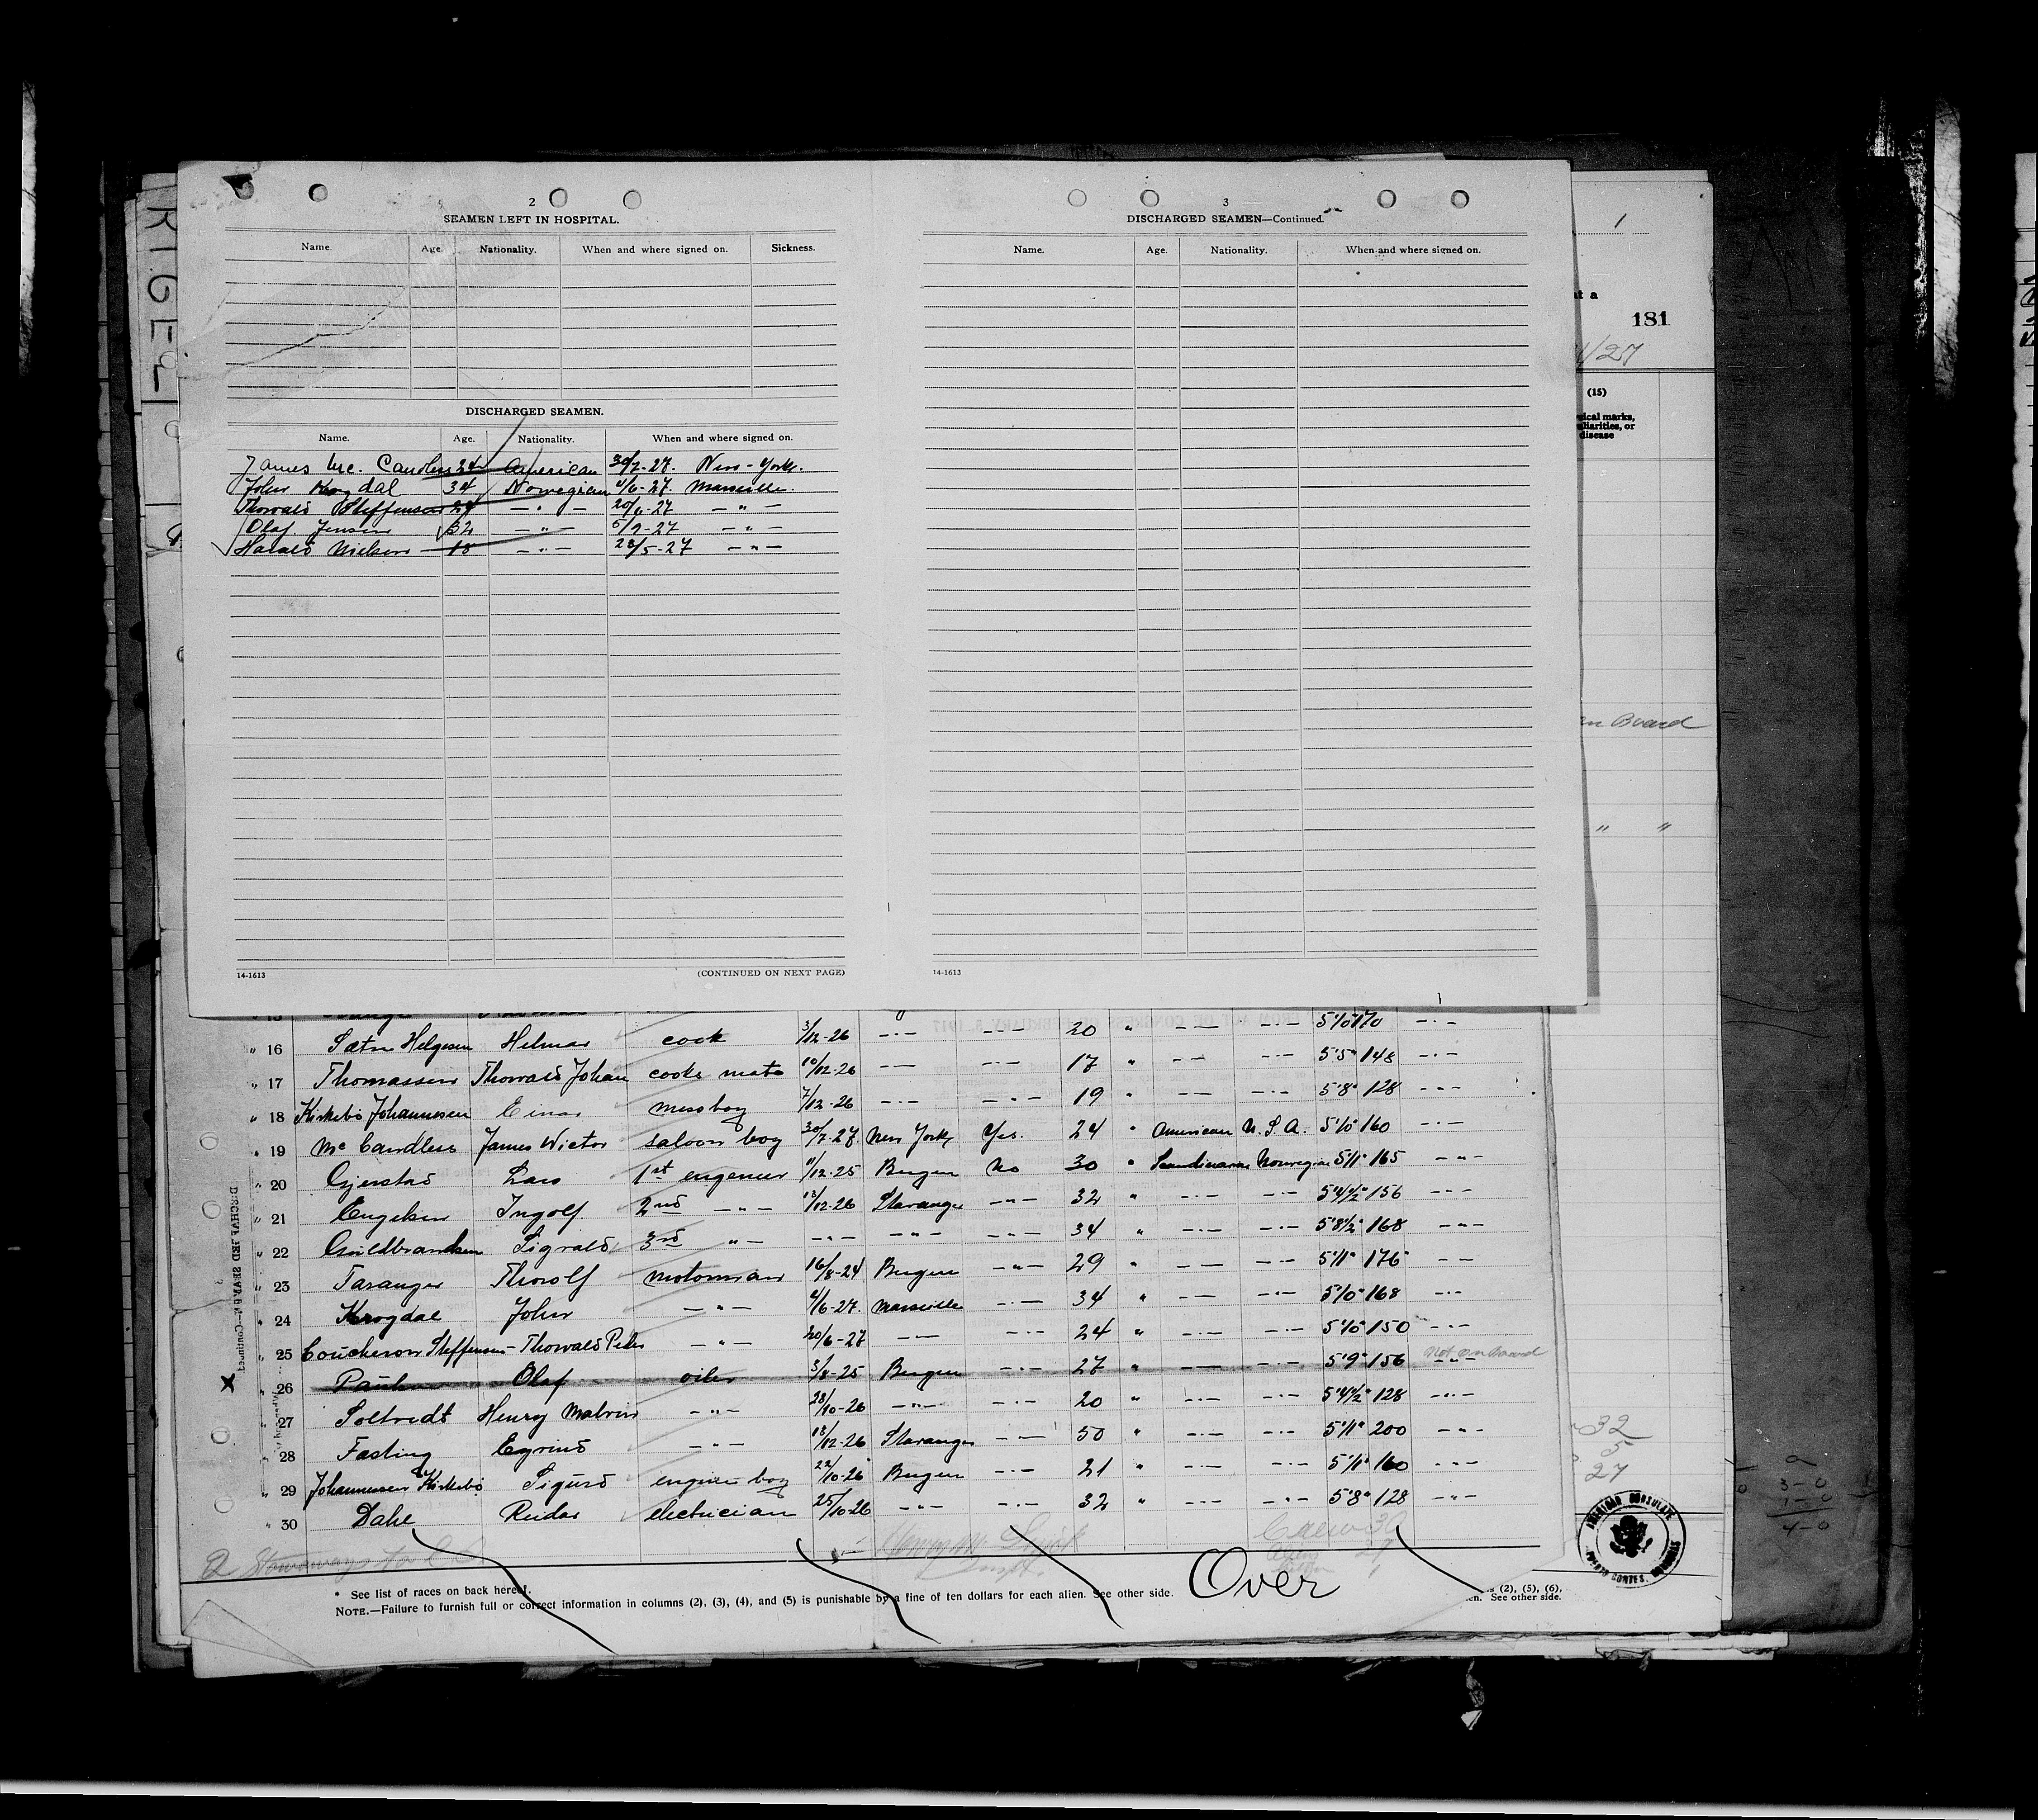 RIGEL
2
SEAMEN LEFT IN HOSPITAL.
Name. Age. Nationality. When and where signed on. Sickness.
DISCHARGED SEAMEN.
Name. Age. Nationality. When and where signed on.
James Mc. Candless 24 American 30/7-27. New-York.
John Krogdal 34 Norwegian 4/6-27. Marseille.
Thorvald Steffensen 24 — " — 20/6-27 — " —
Olaf Jensen 32 — " — 5/9-27 — " —
Harald Nielsen 18 — " — 28/5-27 — " —
14-1613 (CONTINUED ON NEXT PAGE)
3
DISCHARGED SEAMEN—Continued.
Name. Age. Nationality. When and where signed on.
14-1613
1
181
(15)
disease
on Board
" "
" 16 Helgesen Helmar cook 3/12-26 — " — — " — 20 " — " — — " — 5'10" 170 — " —
" 17 Thomassen Thorvald Johan cooks mate 10/12-26 — " — — " — 17 " — " — — " — 5'5" 148 — " —
" 18 Kirkebö Johannesen Einar messboy 7/12-26 — " — — " — 19 " — " — — " — 5'8" 128 — " —
" 19 Mc Candless James Victor saloon boy 30/7-27 New York Yes. 24 " American U.S.A. 5'10" 160 — " —
" 20 Gjerstad Lars 1st engeneer 11/12-25 Bergen No 30 " Scandinavian Norwegian 5'11" 165 — " —
" 21 Engelsen Ingolf 2nd — " — 18/12-26 Stavanger — " — 32 " — " — — " — 5'4½" 156 — " —
" 22 Guldbrandsen Sigvald 3rd " — — " — — " — — " — 34 " — " — — " — 5'8½" 168 — " —
" 23 Taranger Thorolf motorman 16/8-24 Bergen — " — 29 " — " — — " — 5'11" 176 — " —
" 24 Krogdal John — " — 4/6-27. Marseille — " — 34 " — " — — " — 5'10" 168 — " —
" 25 Coucheron Steffensen - Thorvald Peter — " — 20/6-27 — " — — " — 24 " — " — — " — 5'10" 150 — " —
" 26 Paulsen Olaf oiler 3/8-25 Bergen — " — 27 " — " — — " — 5'9" 156 — " — Not on board
" 27 Soltvedt Henry Malvin — " — 28/10-26 — " — — " — 20 " — " — — " — 5'4½" 128 — " —
" 28 Fasting Eyvind — " — 18/12-26 Stavanger — " — 50 " — " — — " — 5'11" 200 — " —
" 29 Johannessen Kirkebö Sigurd engine boy 22/10-26 Bergen — " — 21 " — " — — " — 5'11" 160 — " —
" 30 Dahl Reidar electrician 25/10-26 — " — — " — 32 " — " — — " — 5'8" 128 — " —
32
5
27
Over
* See list of races on back hereof.
NOTE.—Failure to furnish full or correct information in columns (2), (3), (4), and (5) is punishable by a fine of ten dollars for each alien. See other side.
(2), (5), (6),
See other side.
AMERICAN CONSULATE
PUERTO CORTES, HONDURAS